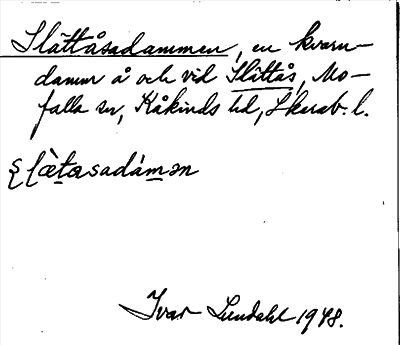 Slättåsadammen, en kvarn-
damm å och vid Slättås, Mo-
falla sn, Kåkinds hd, Skarab. l.
ʂlæ̀tasadám̲ən
Ivar Lundahl 1948.